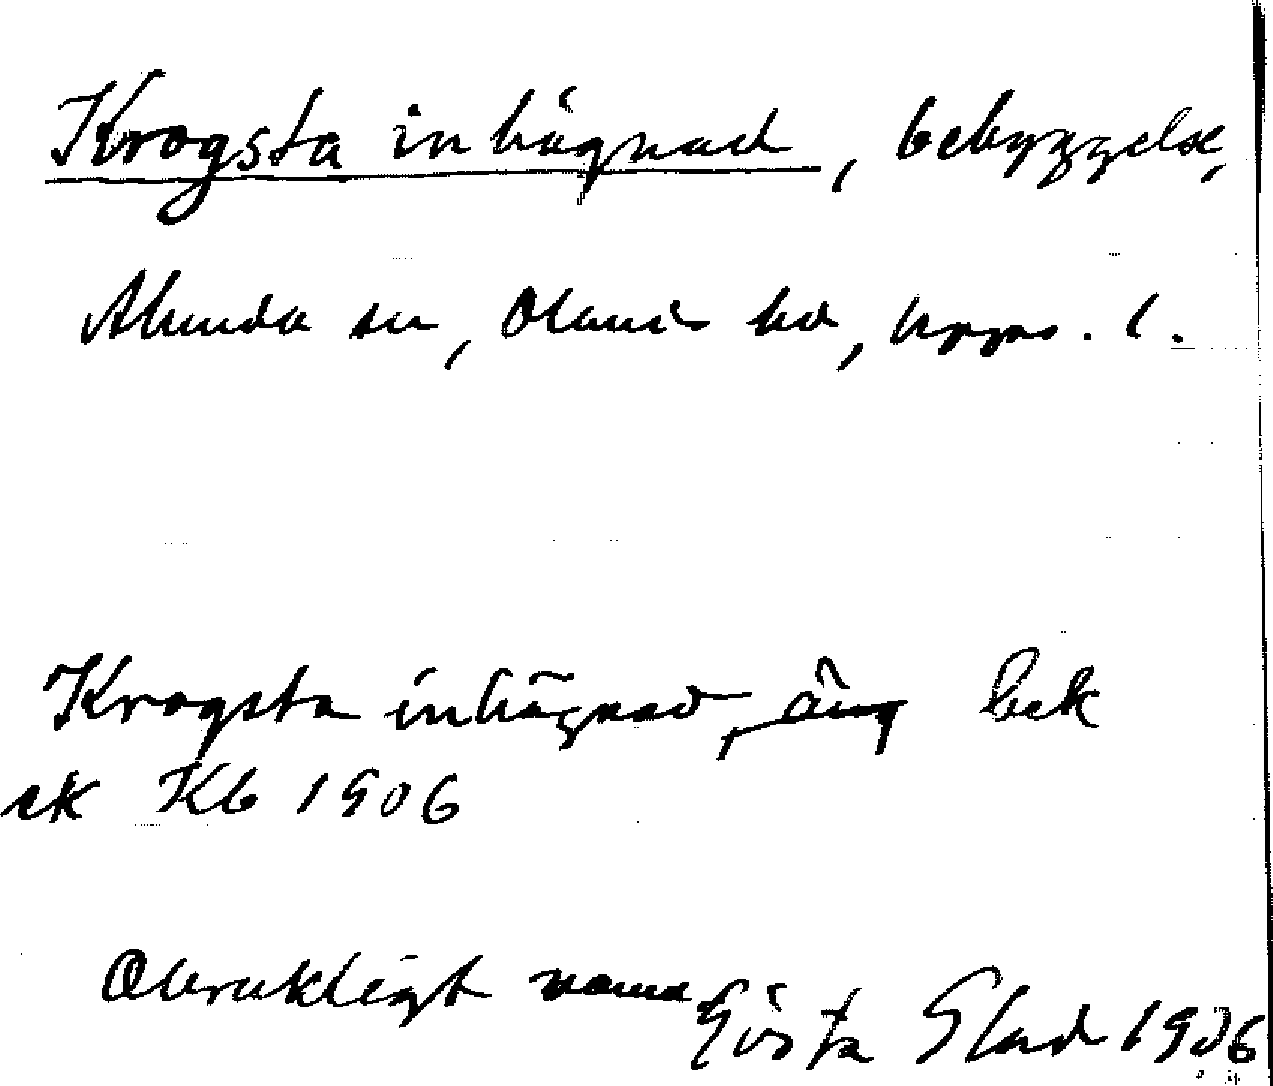 Krogsta inhägnad, bebyggelse,
Alunda sn, Olands hd, Upps. l.
Krogsta inhägnad, äng bek
ek Kb 1906
Obrukligt namn
Gösta Glad 1906